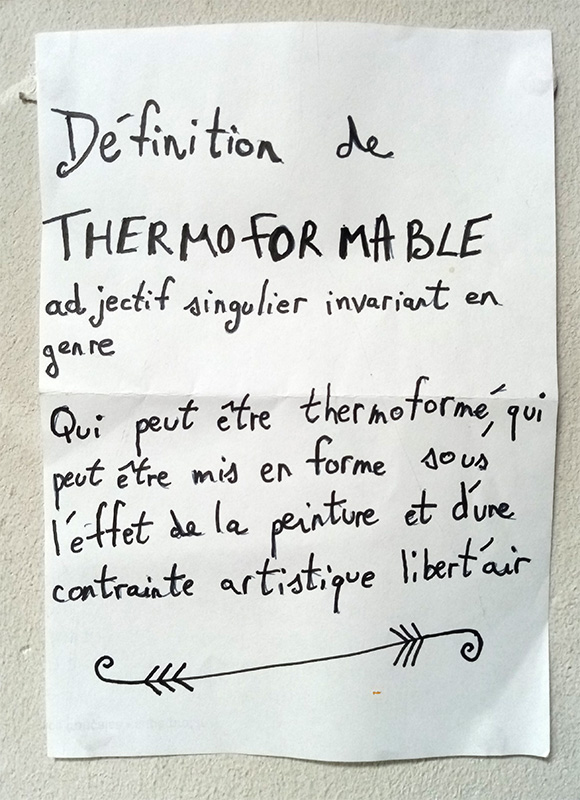 Définition de
THERMOFORMABLE
adjectif singulier invariant en
genre
Qui peut être thermoformé, qui
peut être mis en forme sous
l'effet de la peinture et d'une
contrainte artistique libert'air